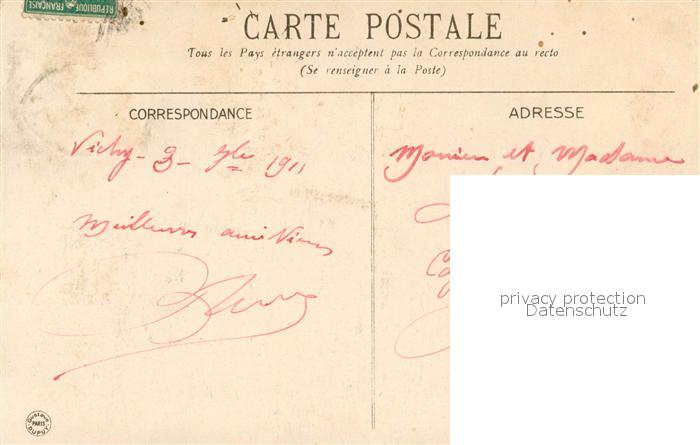 RÉPUBLIQUE FRANÇAISE
CARTE POSTALE
Tous les Pays étrangers n'acceptent pas la Correspondance au recto
(Se renseigner à la Poste)
CORRESPONDANCE
Vichy - 3 - 7bre 1911
Meilleures amitiés
ADRESSE
Monsieur et Madame
privacy protection
Datenschutz
Gustave
PARIS
DUPUY